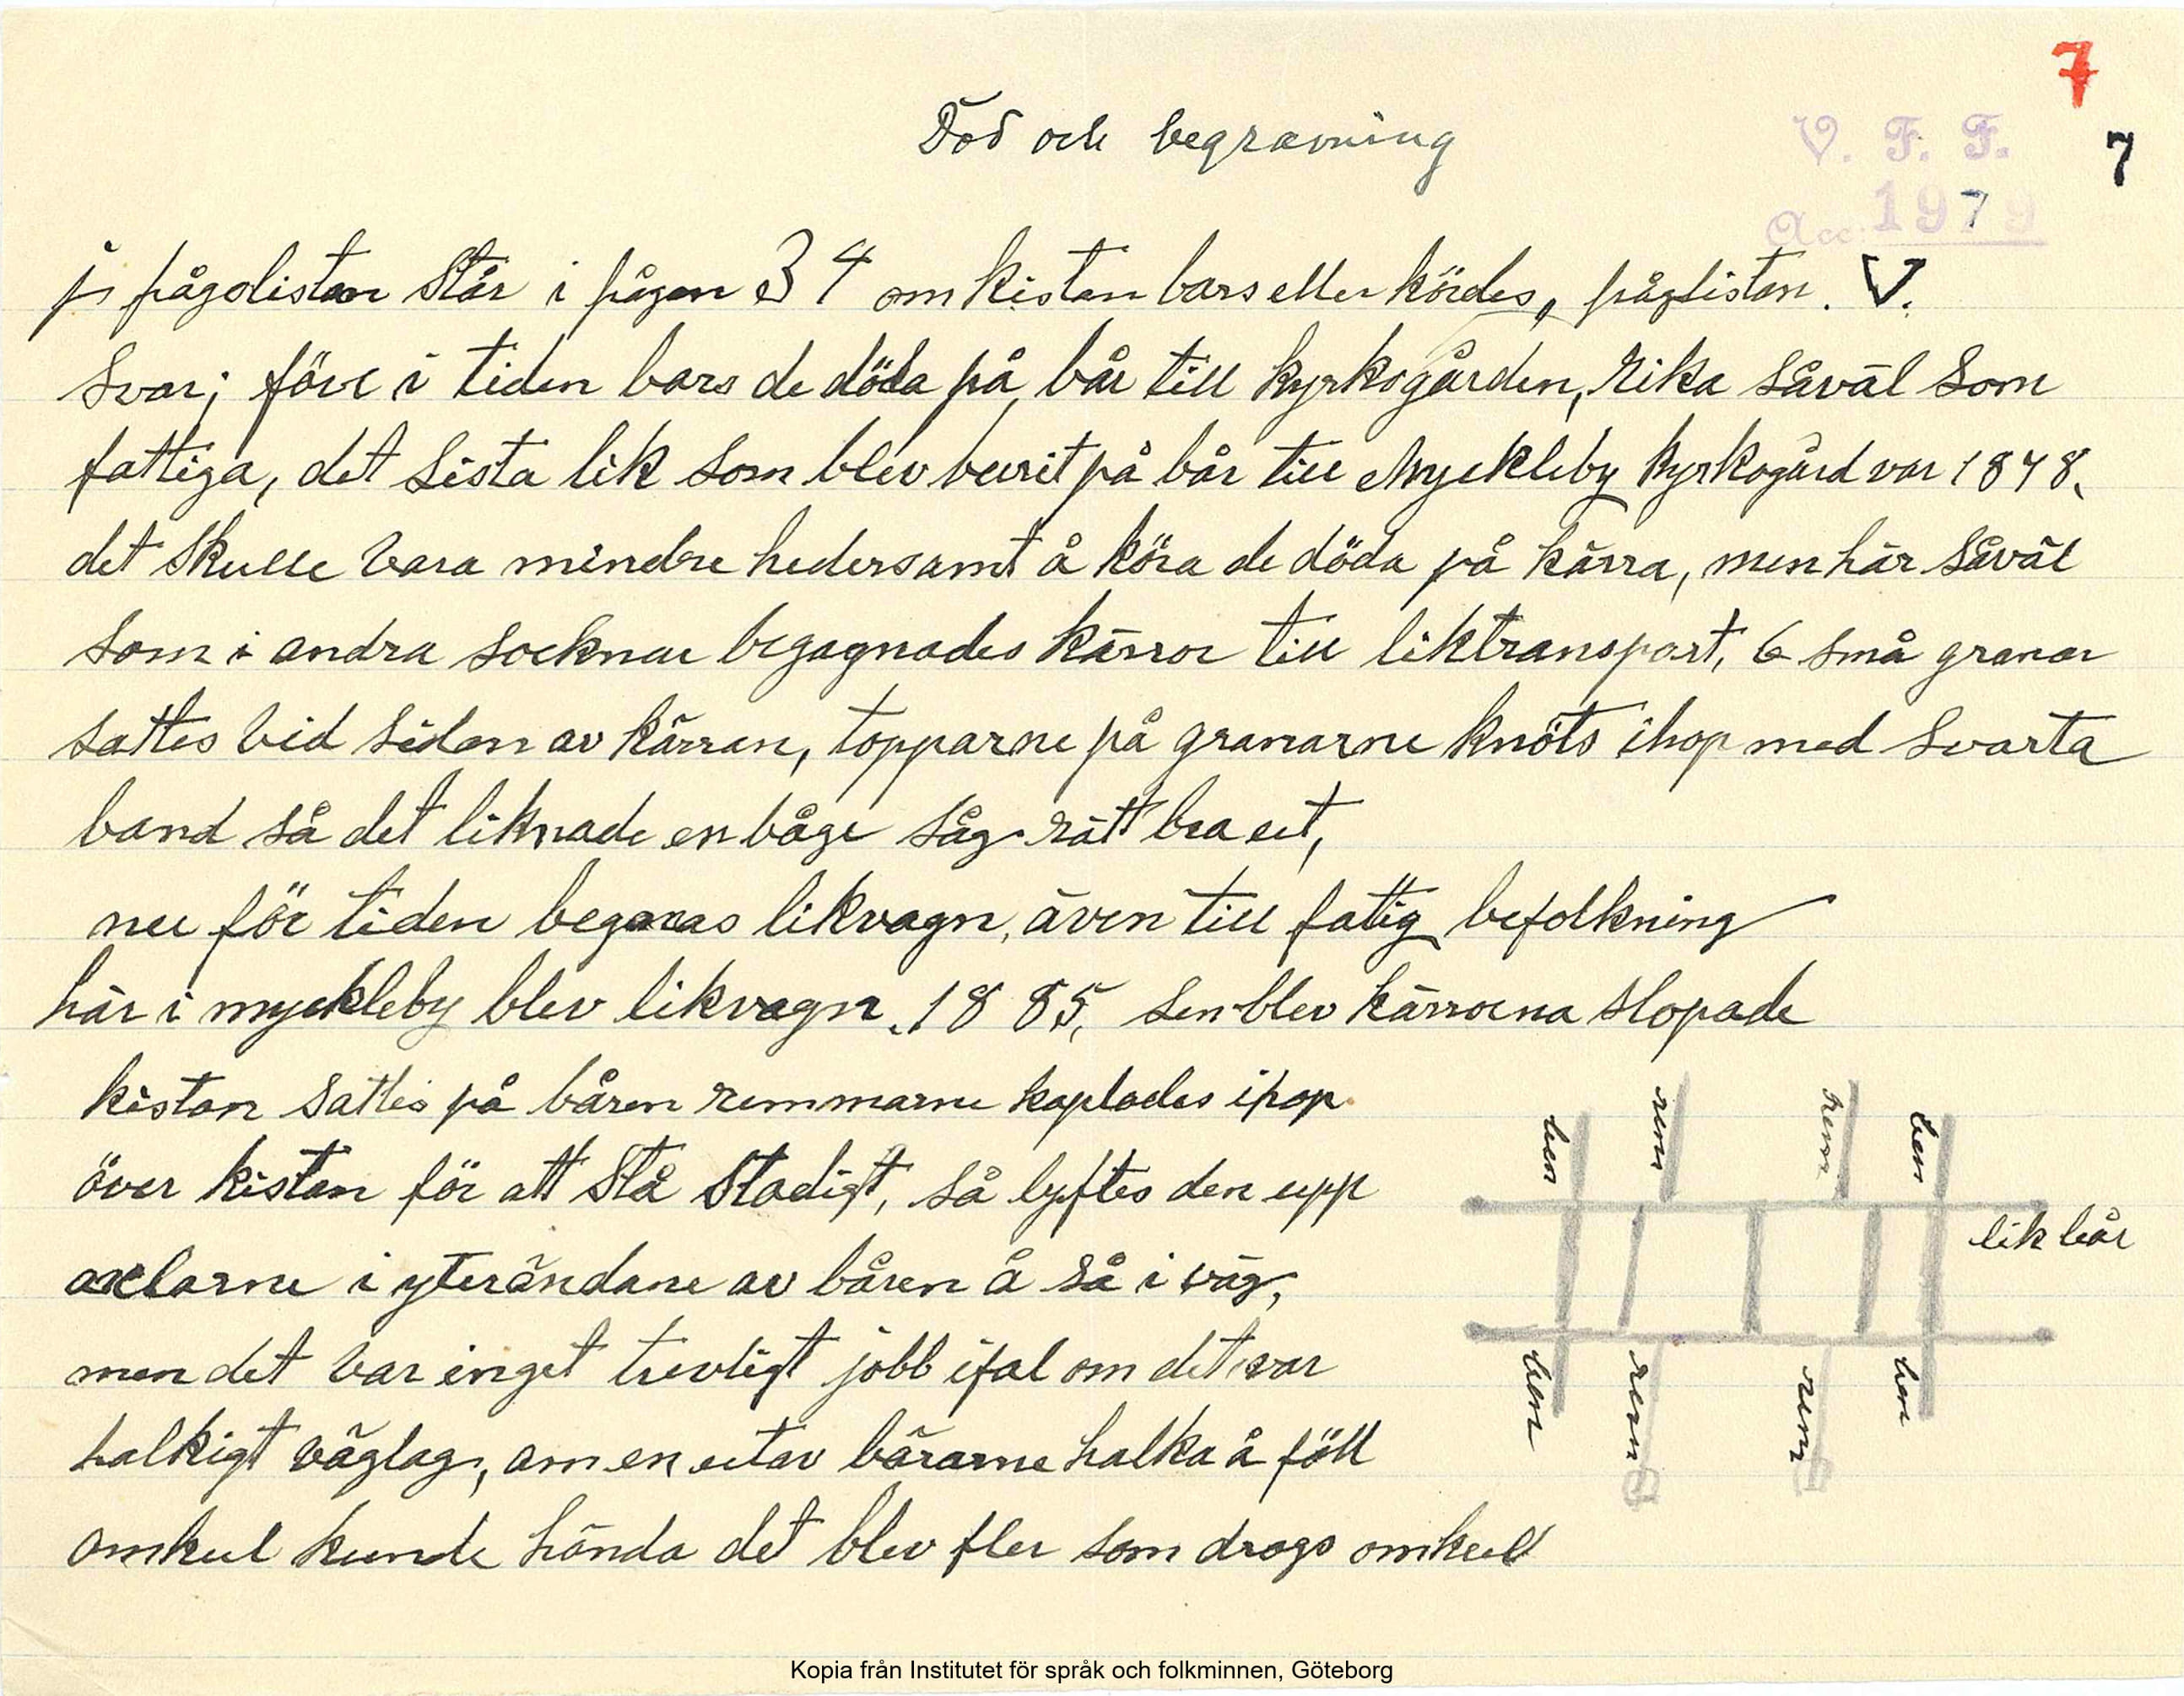 7
V. F. F.
7
Död och begravning
Acc. 1979
i frågolistan står i frågan 34 om kistan bars eller kördes, fråglistan. V.
Svar; före i tiden bars de döda på bår till kyrkogården, rika såväl som
fattiga, det sista lik som blev burit på bår till Myckleby kyrkogård var 1878.
det skulle vara mindre hedersamt å köra de döda på kärra, men här såväl
som i andra socknar begagnades kärror till liktransport, 6 små granar
sattes vid sidan av kärran, topparne på granarne knöts ihop med svarta
band så det liknade en båge såg rätt bra ut,
nu för tiden begaxas likvagn, även till fatig befolkning
här i myckleby blev likvagn 1885, sen blev kärrorna slopade
kistan sattes på båren remmarne koplades ihop
över kistan för att stå stadigt, så lyftes den upp
axlarne i yterändane av båren å så i väg,
men det var inget trevligt jobb ifal om det var
halkigt väglag, om en utav bärarne halka å föll
omkul kunde hända det blev fler som drogs omkull
ben rem rem ben
lik bår
ben rem rem ben
Kopia från Institutet för språk och folkminnen, Göteborg